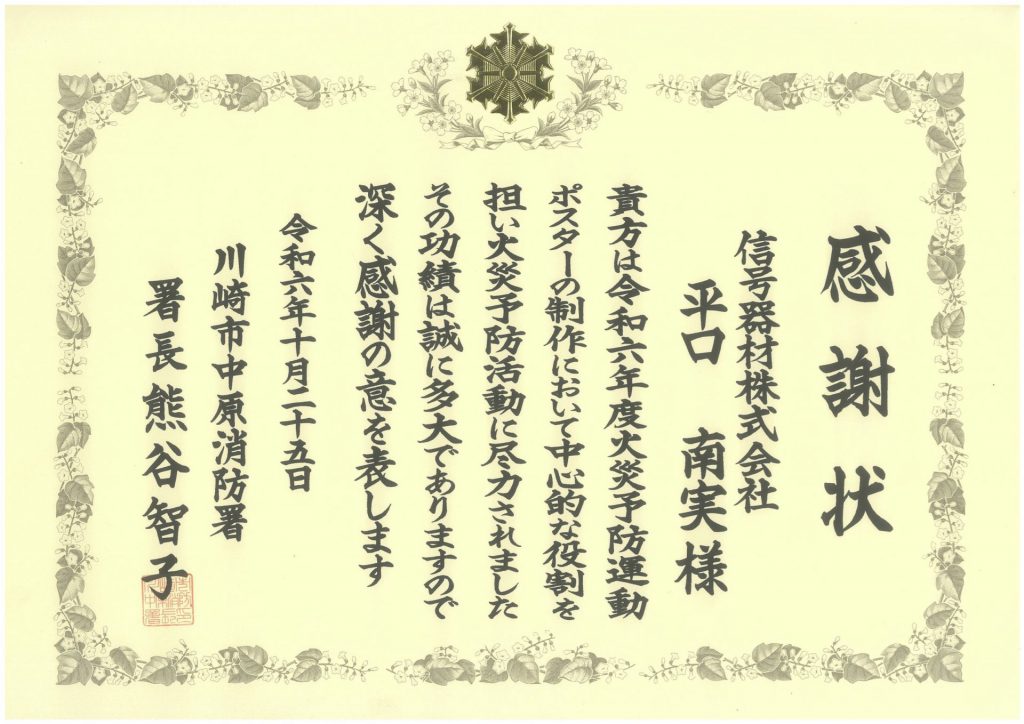 感謝状
信号器材株式会社
平口 南実様
貴方は令和六年度火災予防運動
ポスターの制作において中心的な役割を
担い火災予防活動に尽力されました
その功績は誠に多大でありますので
深く感謝の意を表します
令和六年十月二十五日
川崎市中原消防署
署長熊谷智子